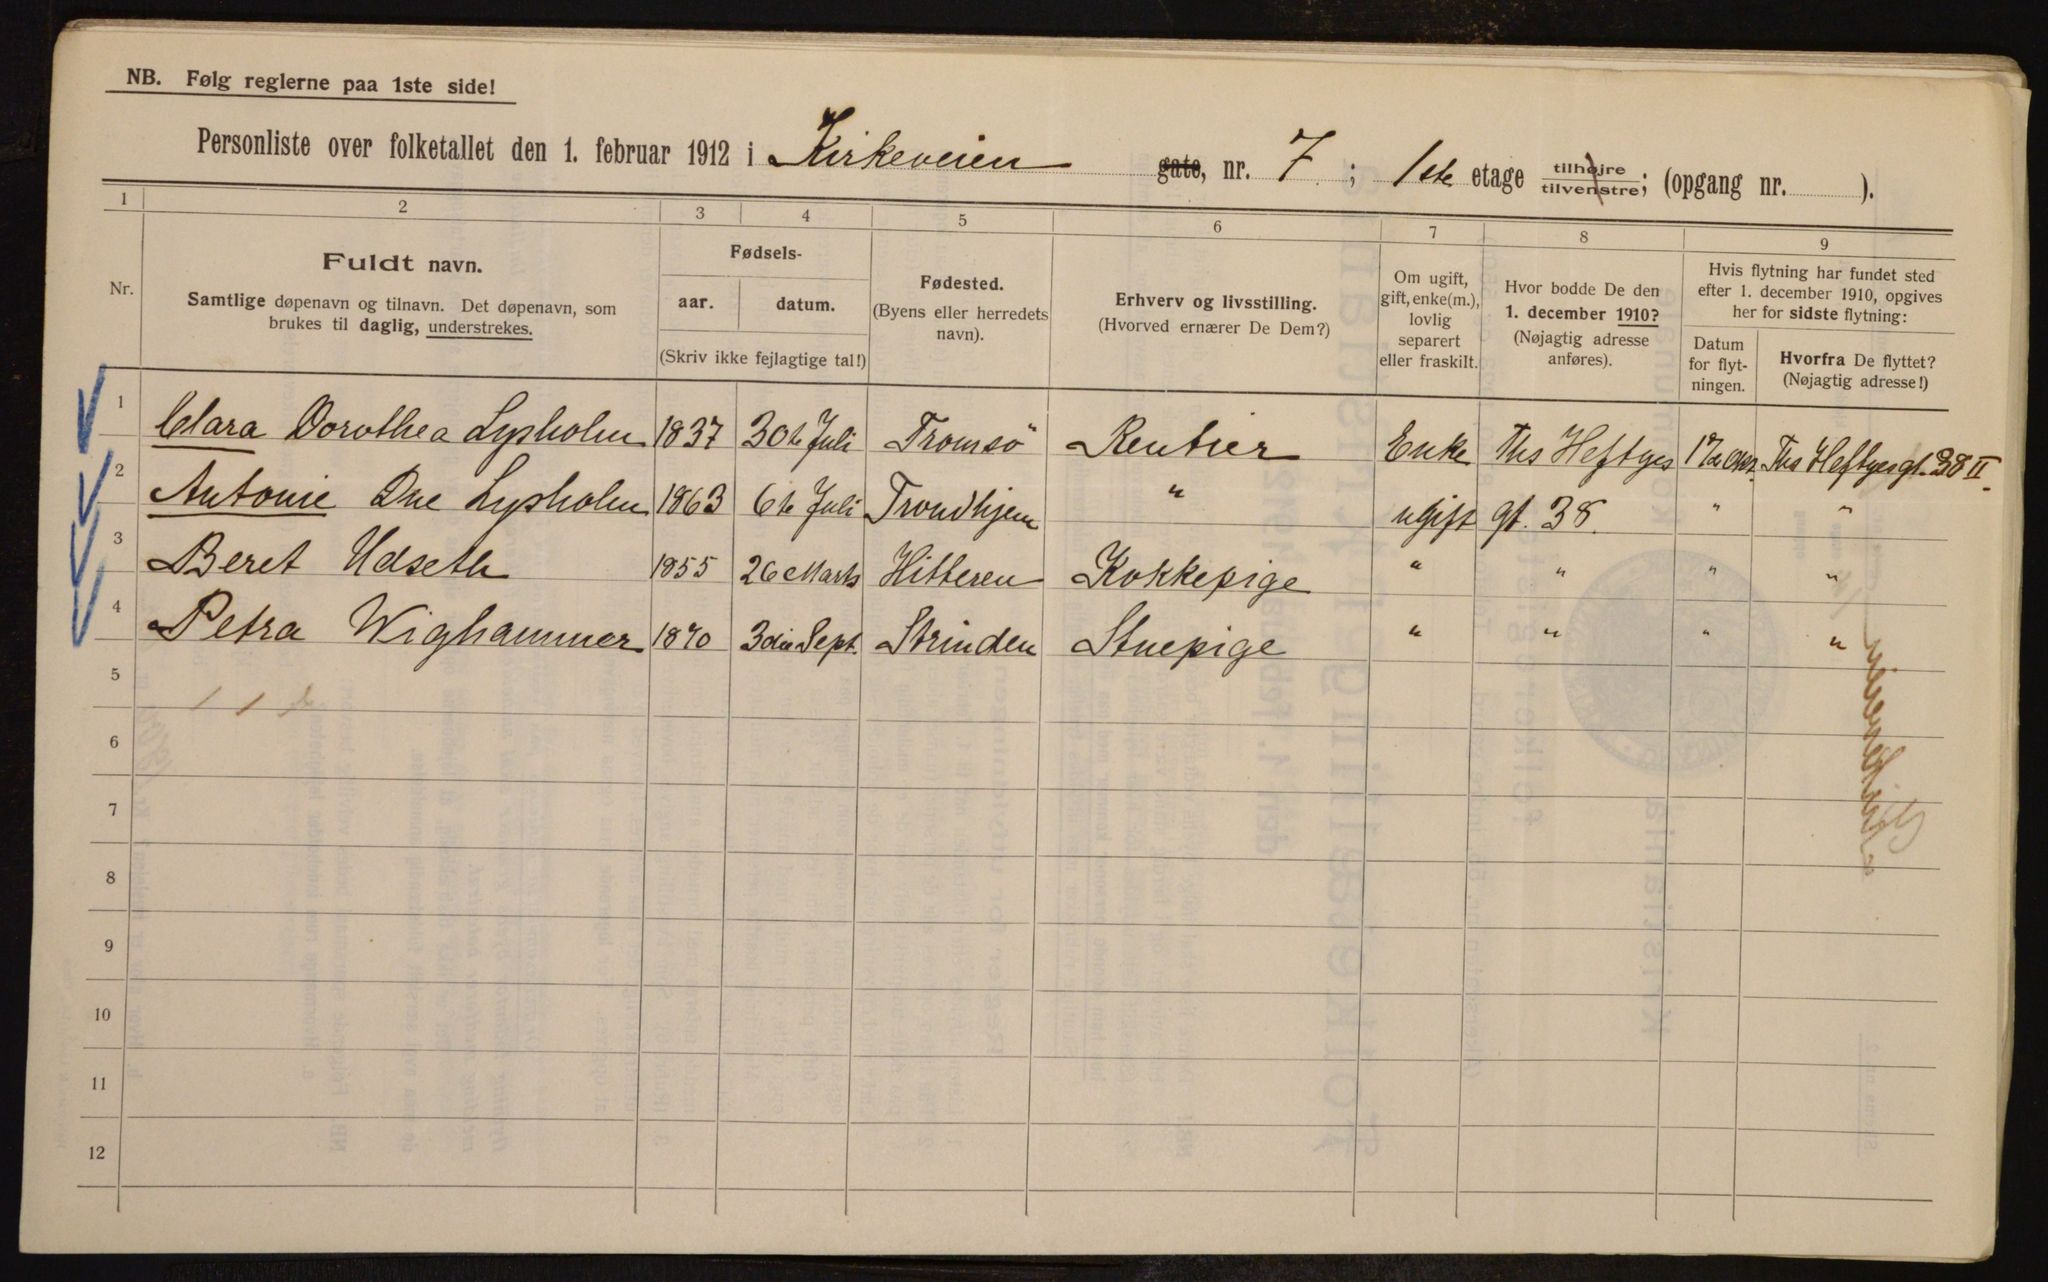 NB. Følg reglerne paa 1ste side!
Personliste over folketallet den 1. februar 1912 i Kirkeveien gate, nr. 7 ; 1ste etage tilhøjre tilvenstre; (opgang nr. ).
1 2 3 4 5 6 7 8 9
Nr.
Fuldt navn.
Samtlige døpenavn og tilnavn. Det døpenavn, som
brukes til daglig, understrekes.
Fødsels-
aar. datum.
(Skriv ikke fejlagtige tal!)
Fødested.
(Byens eller herredets
navn).
Erhverv og livsstilling.
(Hvorved ernærer De Dem?)
Om ugift,
gift, enke(m.),
lovlig
separert
eller fraskilt.
Hvor bodde De den
1. december 1910?
(Nøjagtig adresse
anføres).
Hvis flytning har fundet sted
efter 1. december 1910, opgives
her for sidste flytning:
Datum
for flyt-
ningen.
Hvorfra De flyttet?
(Nøjagtig adresse!)
1 Clara Dorothea Lysholm 1837 30te Juli Tromsö Rentier Enke Ths Heftyes Ths Heftyesgt. 38 II
2 Antonie Dne Lysholm 1863 6te Juli Trondhjem " ugift gt. 38. " "
3 Beret Udseth 1855 26 Marts Hitteren Kokkepige " " " "
4 Petra Wighammer 1870 3die Sept. Strinden Stuepige " " " "
5
6
7
8
9
10
11
12